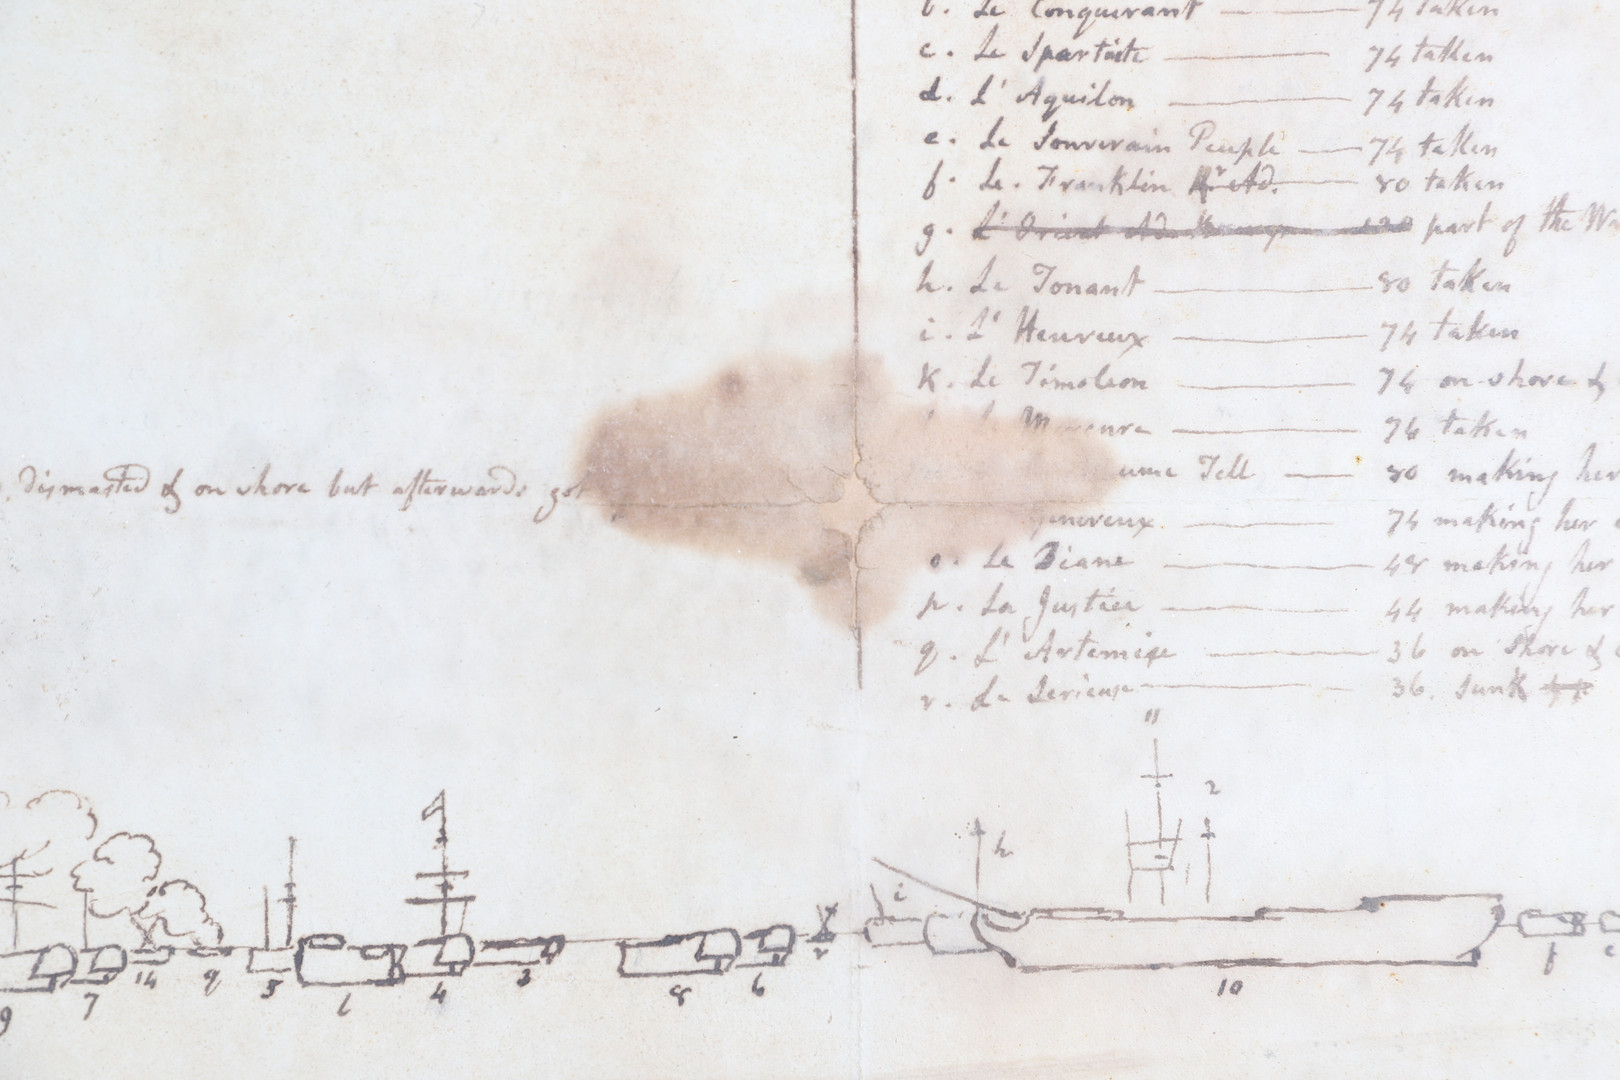 b. Le Conquerant — 74 taken
c. Le Spartiate — 74 taken
d. L' Aquilon — 74 taken
e. Le Souverain Peuple — 74 taken
f. Le. Franklin Rr Ad. — 80 taken
g. L' Orient Ad. 120 part of the
h. Le Tonant — 80 taken
i. L' Heureux — 74 taken
k. Le Timoleon — 74 on shore &
Le Mercure — 74 taken
ume Tell — 80 making her
dismasted & on shore but afterwards got
enereux — 74 making her
o. La Diane — 48 making her
p. La Justice — 44 making her
q. L' Artemise — 36 on shore &
r. La Serieuse — 36. Sunk
11
2
h
i
9 7 14 q 5 l 4 3 8 6 r 10 f